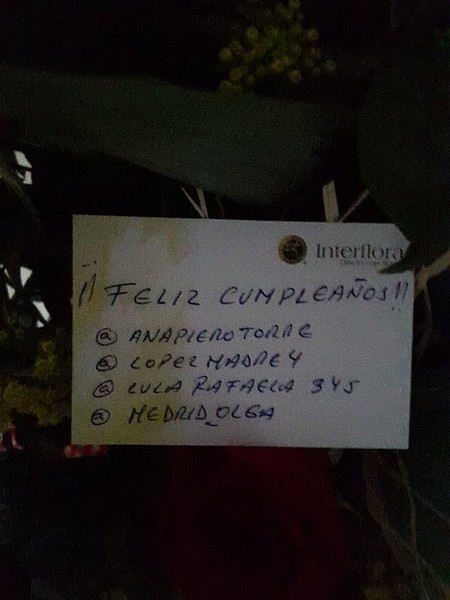 Interflora
¡¡FELIZ CUMPLEAÑOS!!
@ ANAPIEROTORRE
@ LOPEZMADRE4
@ LULA RAFAELA 345
@ MEDRID_OLGA